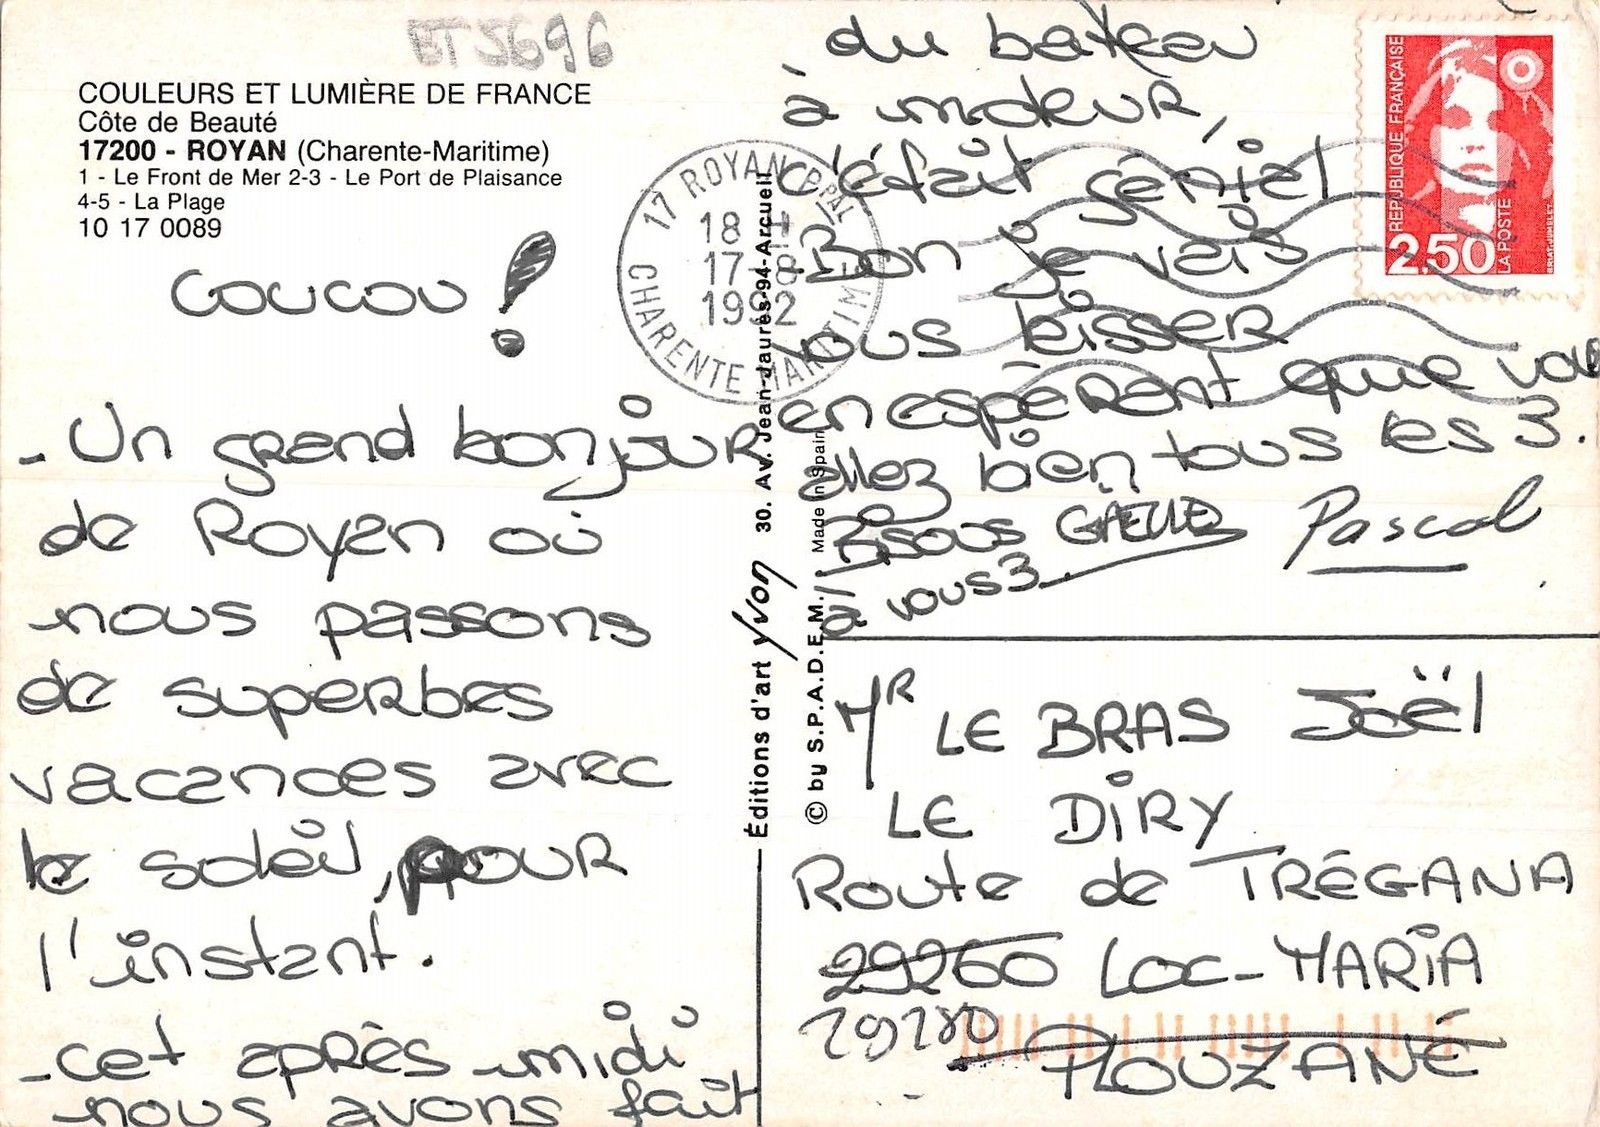 ET2696
COULEURS ET LUMIÈRE DE FRANCE
Côte de Beauté
17200 - ROYAN (Charente-Maritime)
1 - Le Front de Mer 2-3 - Le Port de Plaisance
4-5 - La Plage
10 17 0089
Coucou !
- Un grand bonjour
de Royan où
nous passons
de superbes
vacances avec
le soleil, pour
l'instant.
- cet après-midi
nous avons fait
du bateau
à moteur,
c'était génial
- Bon je vais
vous laisser
en espérant que vous
allez bien tous les 3.
Bisous GAËLLE Pascal
à vous 3.
17 ROYAN PPAL
18 H
17 - 8
1992
CHARENTE MARITIME
RÉPUBLIQUE FRANÇAISE
2,50
LA POSTE
BRIAT-JUMELET
Éditions d'art Yvon 30. Av. Jean-Jaurès-94-Arcueil
© by S.P.A.D.E.M. Made in Spain
Mr LE BRAS Joël
LE DiRY
Route de TRÉGANA
29260 LOC-MARiA
29280 PLOUZANÉ